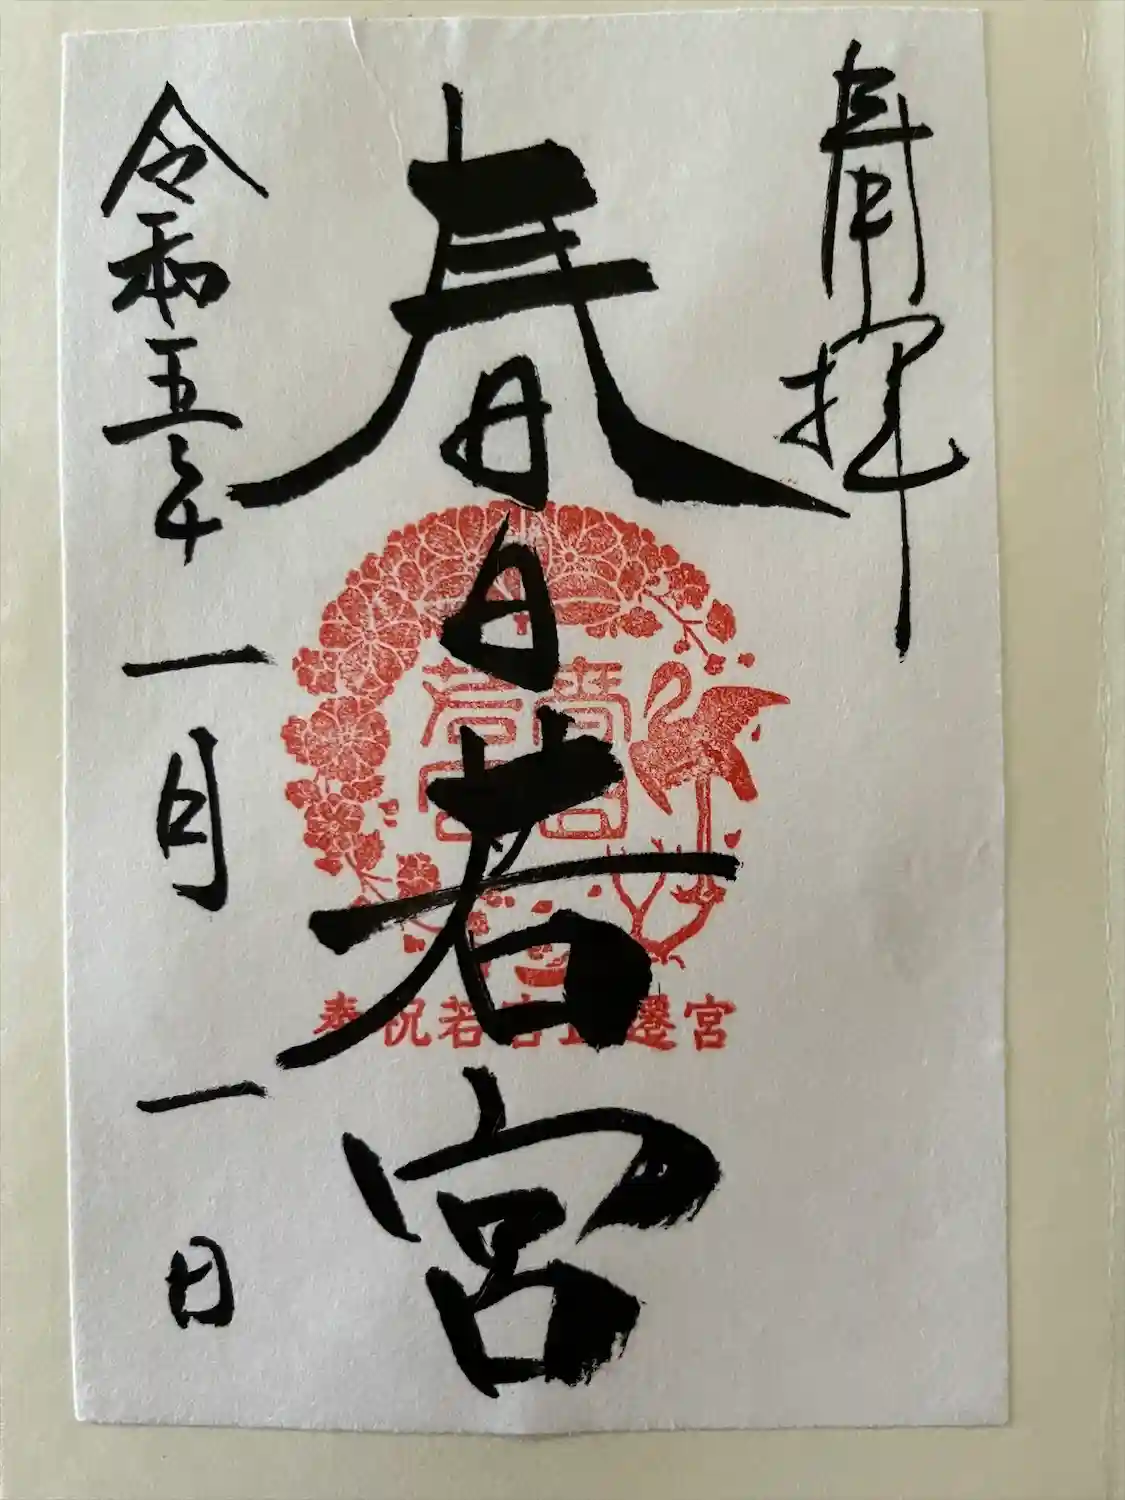 奉拝
春日若宮
春日
若宮
奉祝若宮正遷宮
令和五年一月一日